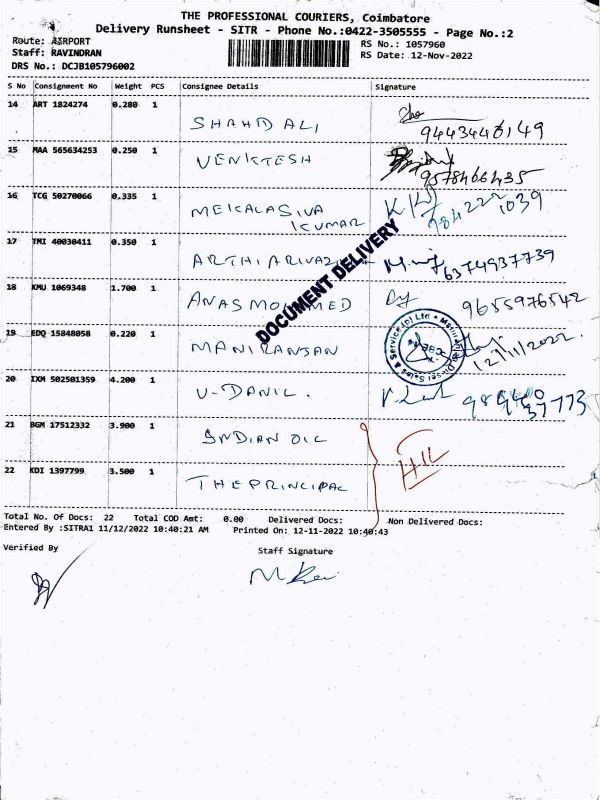 THE PROFESSIONAL COURIERS, Coimbatore
Delivery Runsheet - SITR - Phone No.:0422-3505555 - Page No.:2
Route: AIRPORT
RS No.: 1057960
Staff: RAVINDRAN
RS Date: 12-Nov-2022
DRS No.: DCJB105796002
S No Consignment No Weight PCS Consignee Details Signature
14 ART 1824274 0.280 1 SHAHID ALI
9443446149
15 MAA 565634253 0.250 1 VENKTESH
9578466435
16 TCG 50270066 0.335 1 MEKALASIVA
KUMAR 984222 1039
17 TMI 40030411 0.350 1 ARTHI 6374937739
18 KMU 1069348 1.700 1 ANAS MOHAMED 9655976542
DOCUMENT DELIVERY
19 EDQ 15848058 0.220 1 MANIRANJAN 12/11/2022
20 IXM 502501359 4.200 1 V-DANIL.
37773
21 BGM 17512332 3.900 1 INDIAN OIL
22 KDI 1397799 3.500 1 THE PRINCIPAL
Total No. Of Docs: 22 Total COD Amt: 0.00 Delivered Docs: Non Delivered Docs:
Entered By :SITRA1 11/12/2022 10:40:21 AM Printed On: 12-11-2022 10:40:43
Verified By
Staff Signature